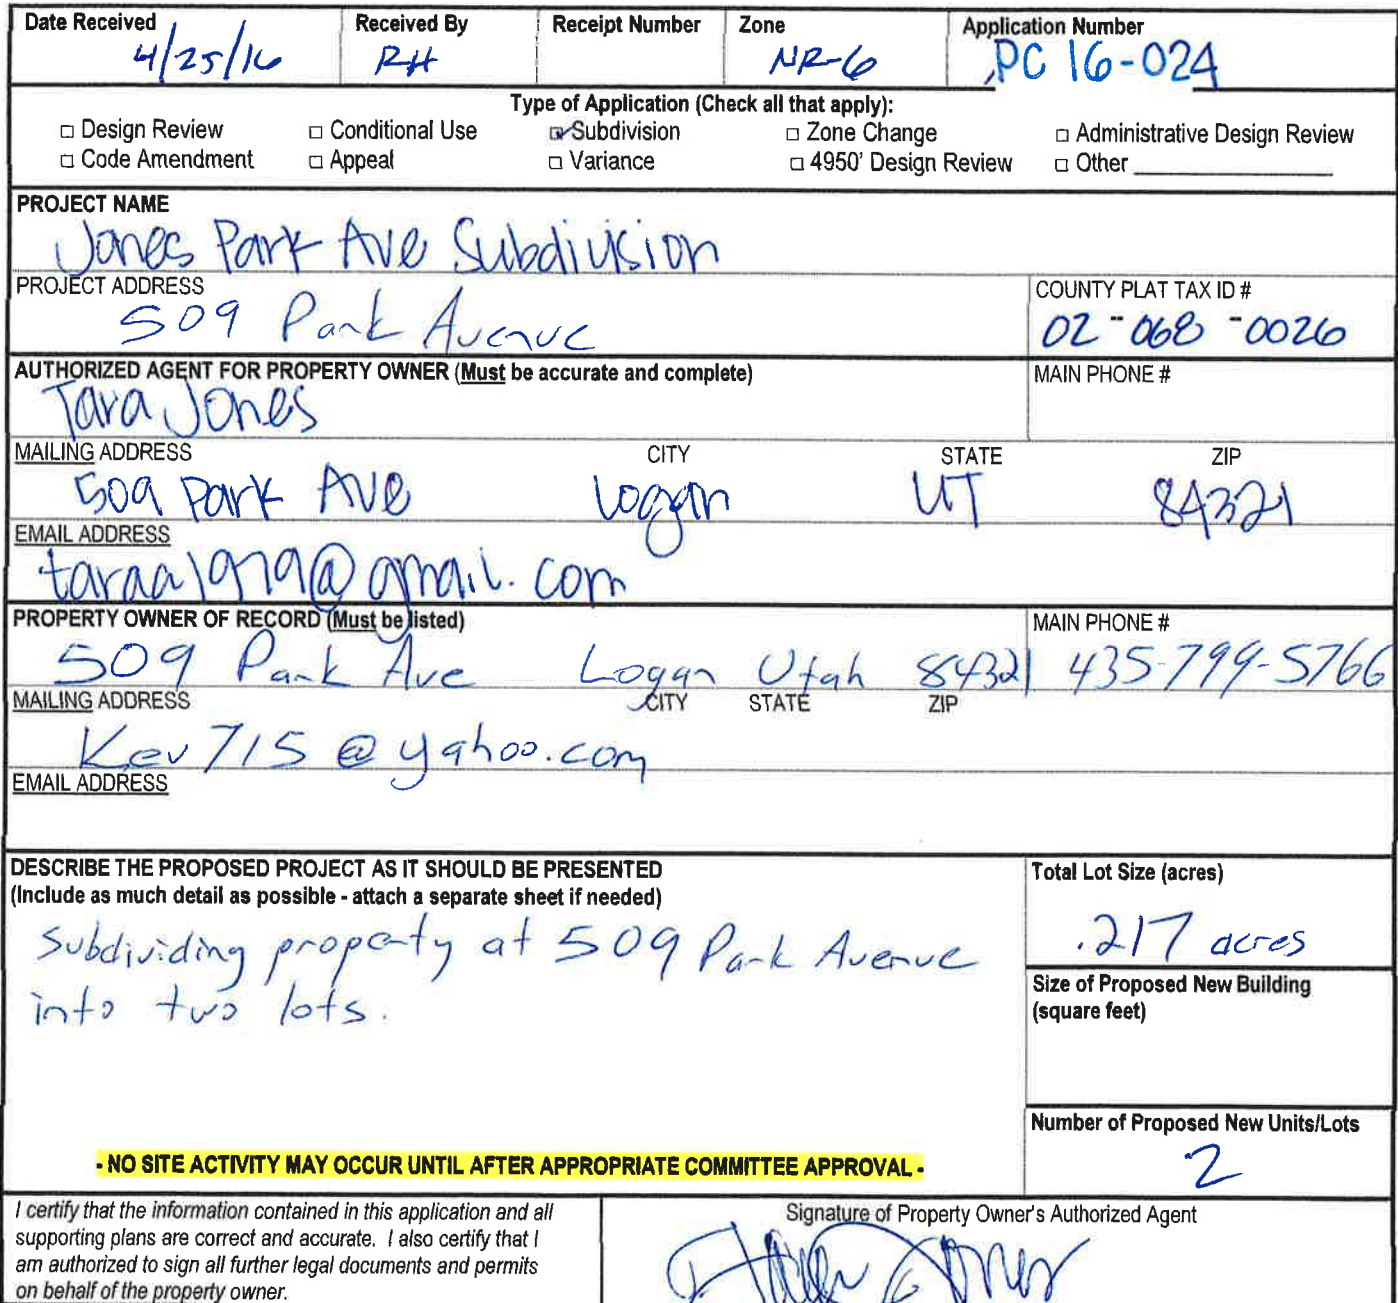 Date Received Received By Receipt Number Zone Application Number
4/25/16 RH NR-6 PC 16-024
Type of Application (Check all that apply):
□ Design Review □ Conditional Use ☑ Subdivision □ Zone Change □ Administrative Design Review
□ Code Amendment □ Appeal □ Variance □ 4950' Design Review □ Other
PROJECT NAME
Jones Park Ave Subdivision
PROJECT ADDRESS COUNTY PLAT TAX ID #
509 Park Avenue 02-068-0026
AUTHORIZED AGENT FOR PROPERTY OWNER (Must be accurate and complete) MAIN PHONE #
Tara Jones
MAILING ADDRESS CITY STATE ZIP
509 Park Ave Logan UT 84321
EMAIL ADDRESS
taraa1979@gmail.com
PROPERTY OWNER OF RECORD (Must be listed) MAIN PHONE #
509 Park Ave Logan Utah 84321 435-799-5766
MAILING ADDRESS CITY STATE ZIP
Kev715@yahoo.com
EMAIL ADDRESS
DESCRIBE THE PROPOSED PROJECT AS IT SHOULD BE PRESENTED Total Lot Size (acres)
(Include as much detail as possible - attach a separate sheet if needed)
Subdividing property at 509 Park Avenue .217 acres
into two lots.
Size of Proposed New Building
(square feet)
Number of Proposed New Units/Lots
- NO SITE ACTIVITY MAY OCCUR UNTIL AFTER APPROPRIATE COMMITTEE APPROVAL - 2
I certify that the information contained in this application and all
supporting plans are correct and accurate. I also certify that I
am authorized to sign all further legal documents and permits
on behalf of the property owner.
Signature of Property Owner's Authorized Agent